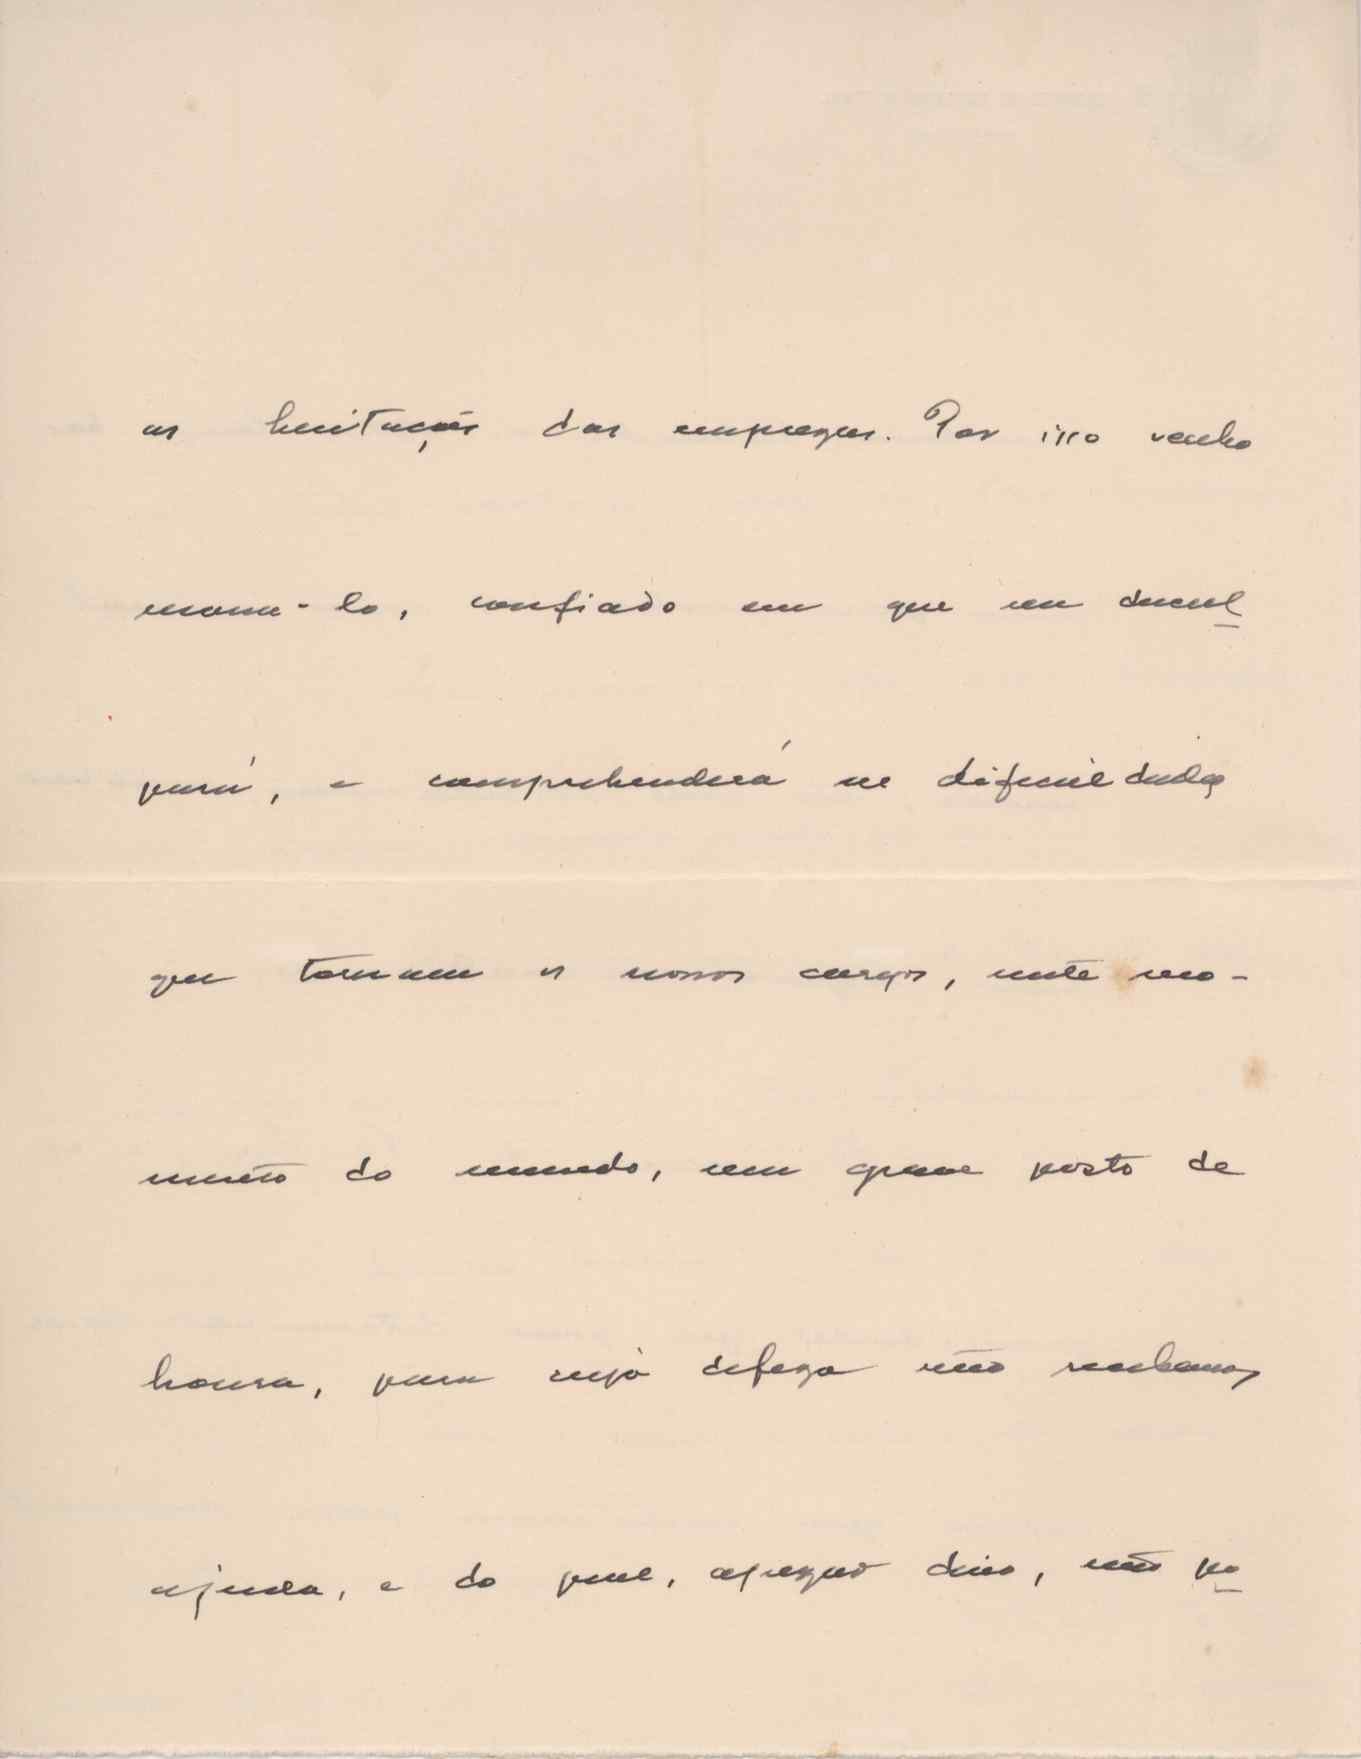 as hesitações das empregas. Por isso venho
-lo, confiado em que me descul
pará, e comprehenderá as dificuldades
que tornam os nossos cargos, neste mo-
mento do mundo, um grave posto de
honra, para cuja defeza não recebemos
ajuda, e do qual, apezar disso, não po